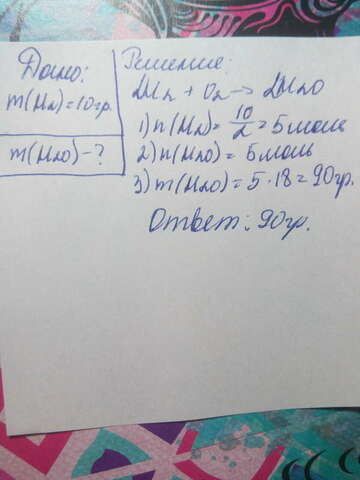 Дано:
m(H₂)=10гр.
m(H₂O)-?
Решение:
2H₂ + O₂ → 2H₂O
1) n(H₂) = 10/2 = 5 моль
2) n(H₂O) = 5 моль
3) m(H₂O) = 5 · 18 = 90гр.
Ответ: 90гр.